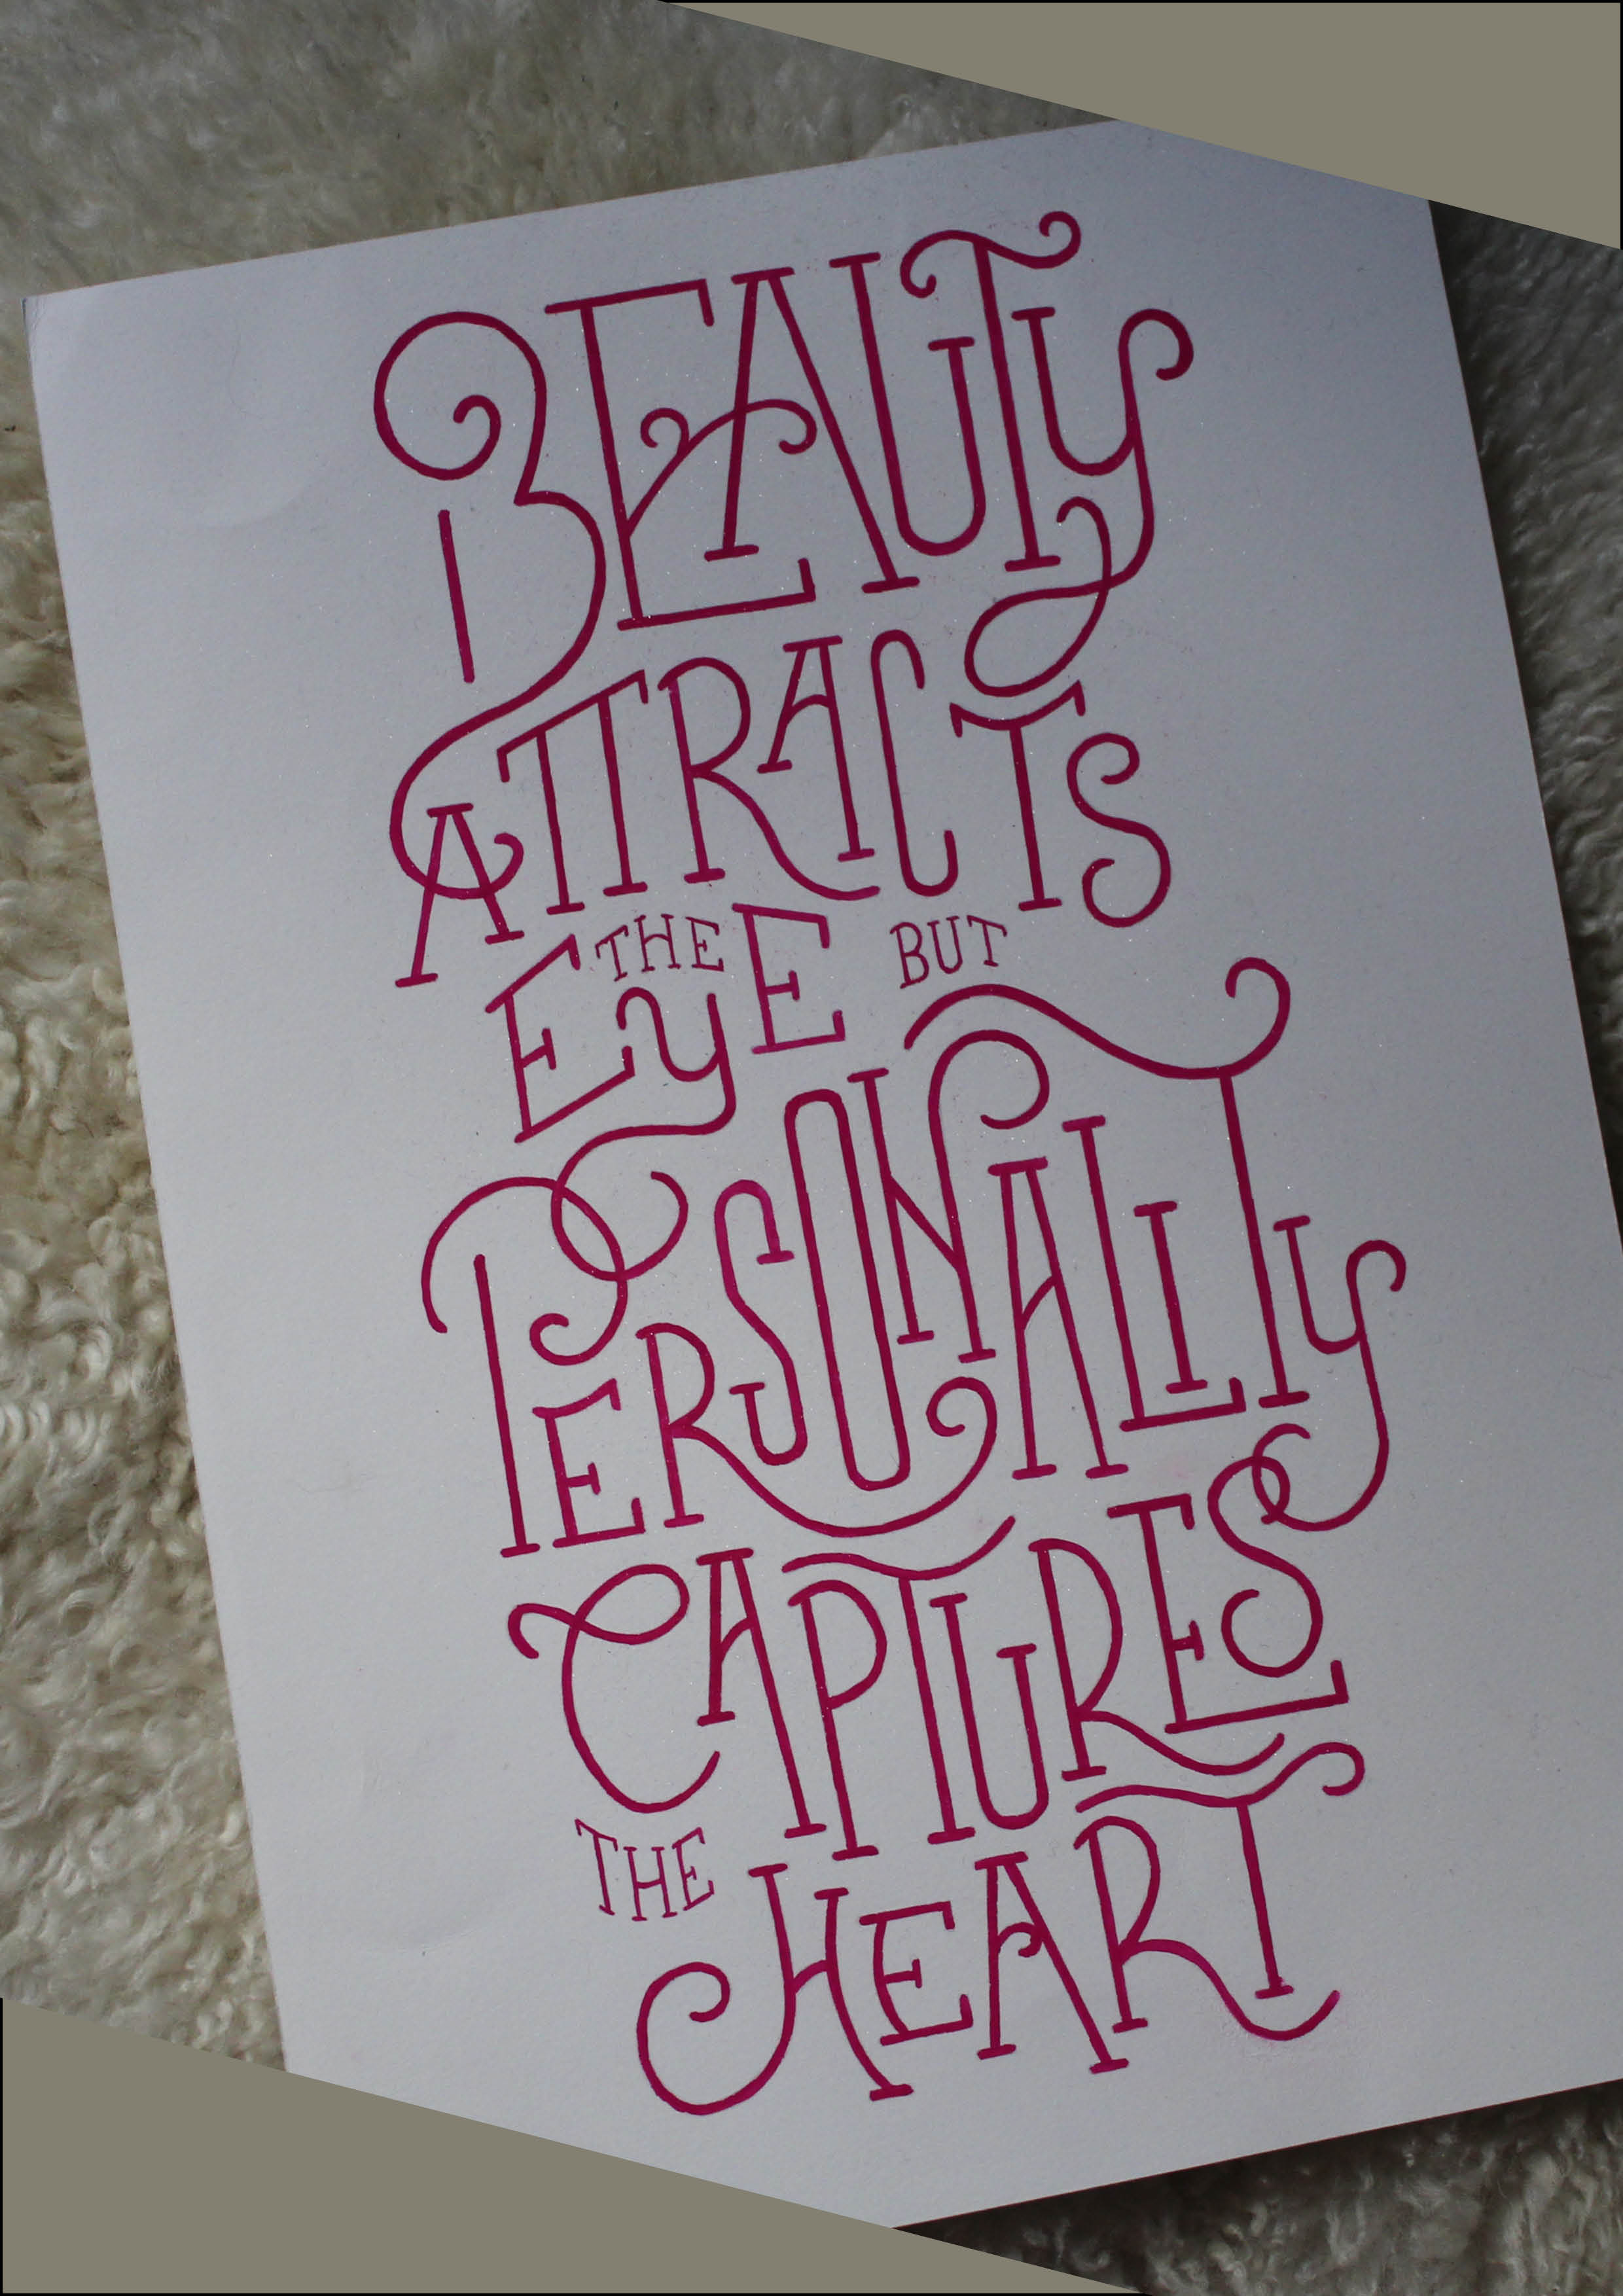 BEAUTY
ATTRACTS
THE EYE BUT
PERSONALITY
CAPTURES
THE HEART